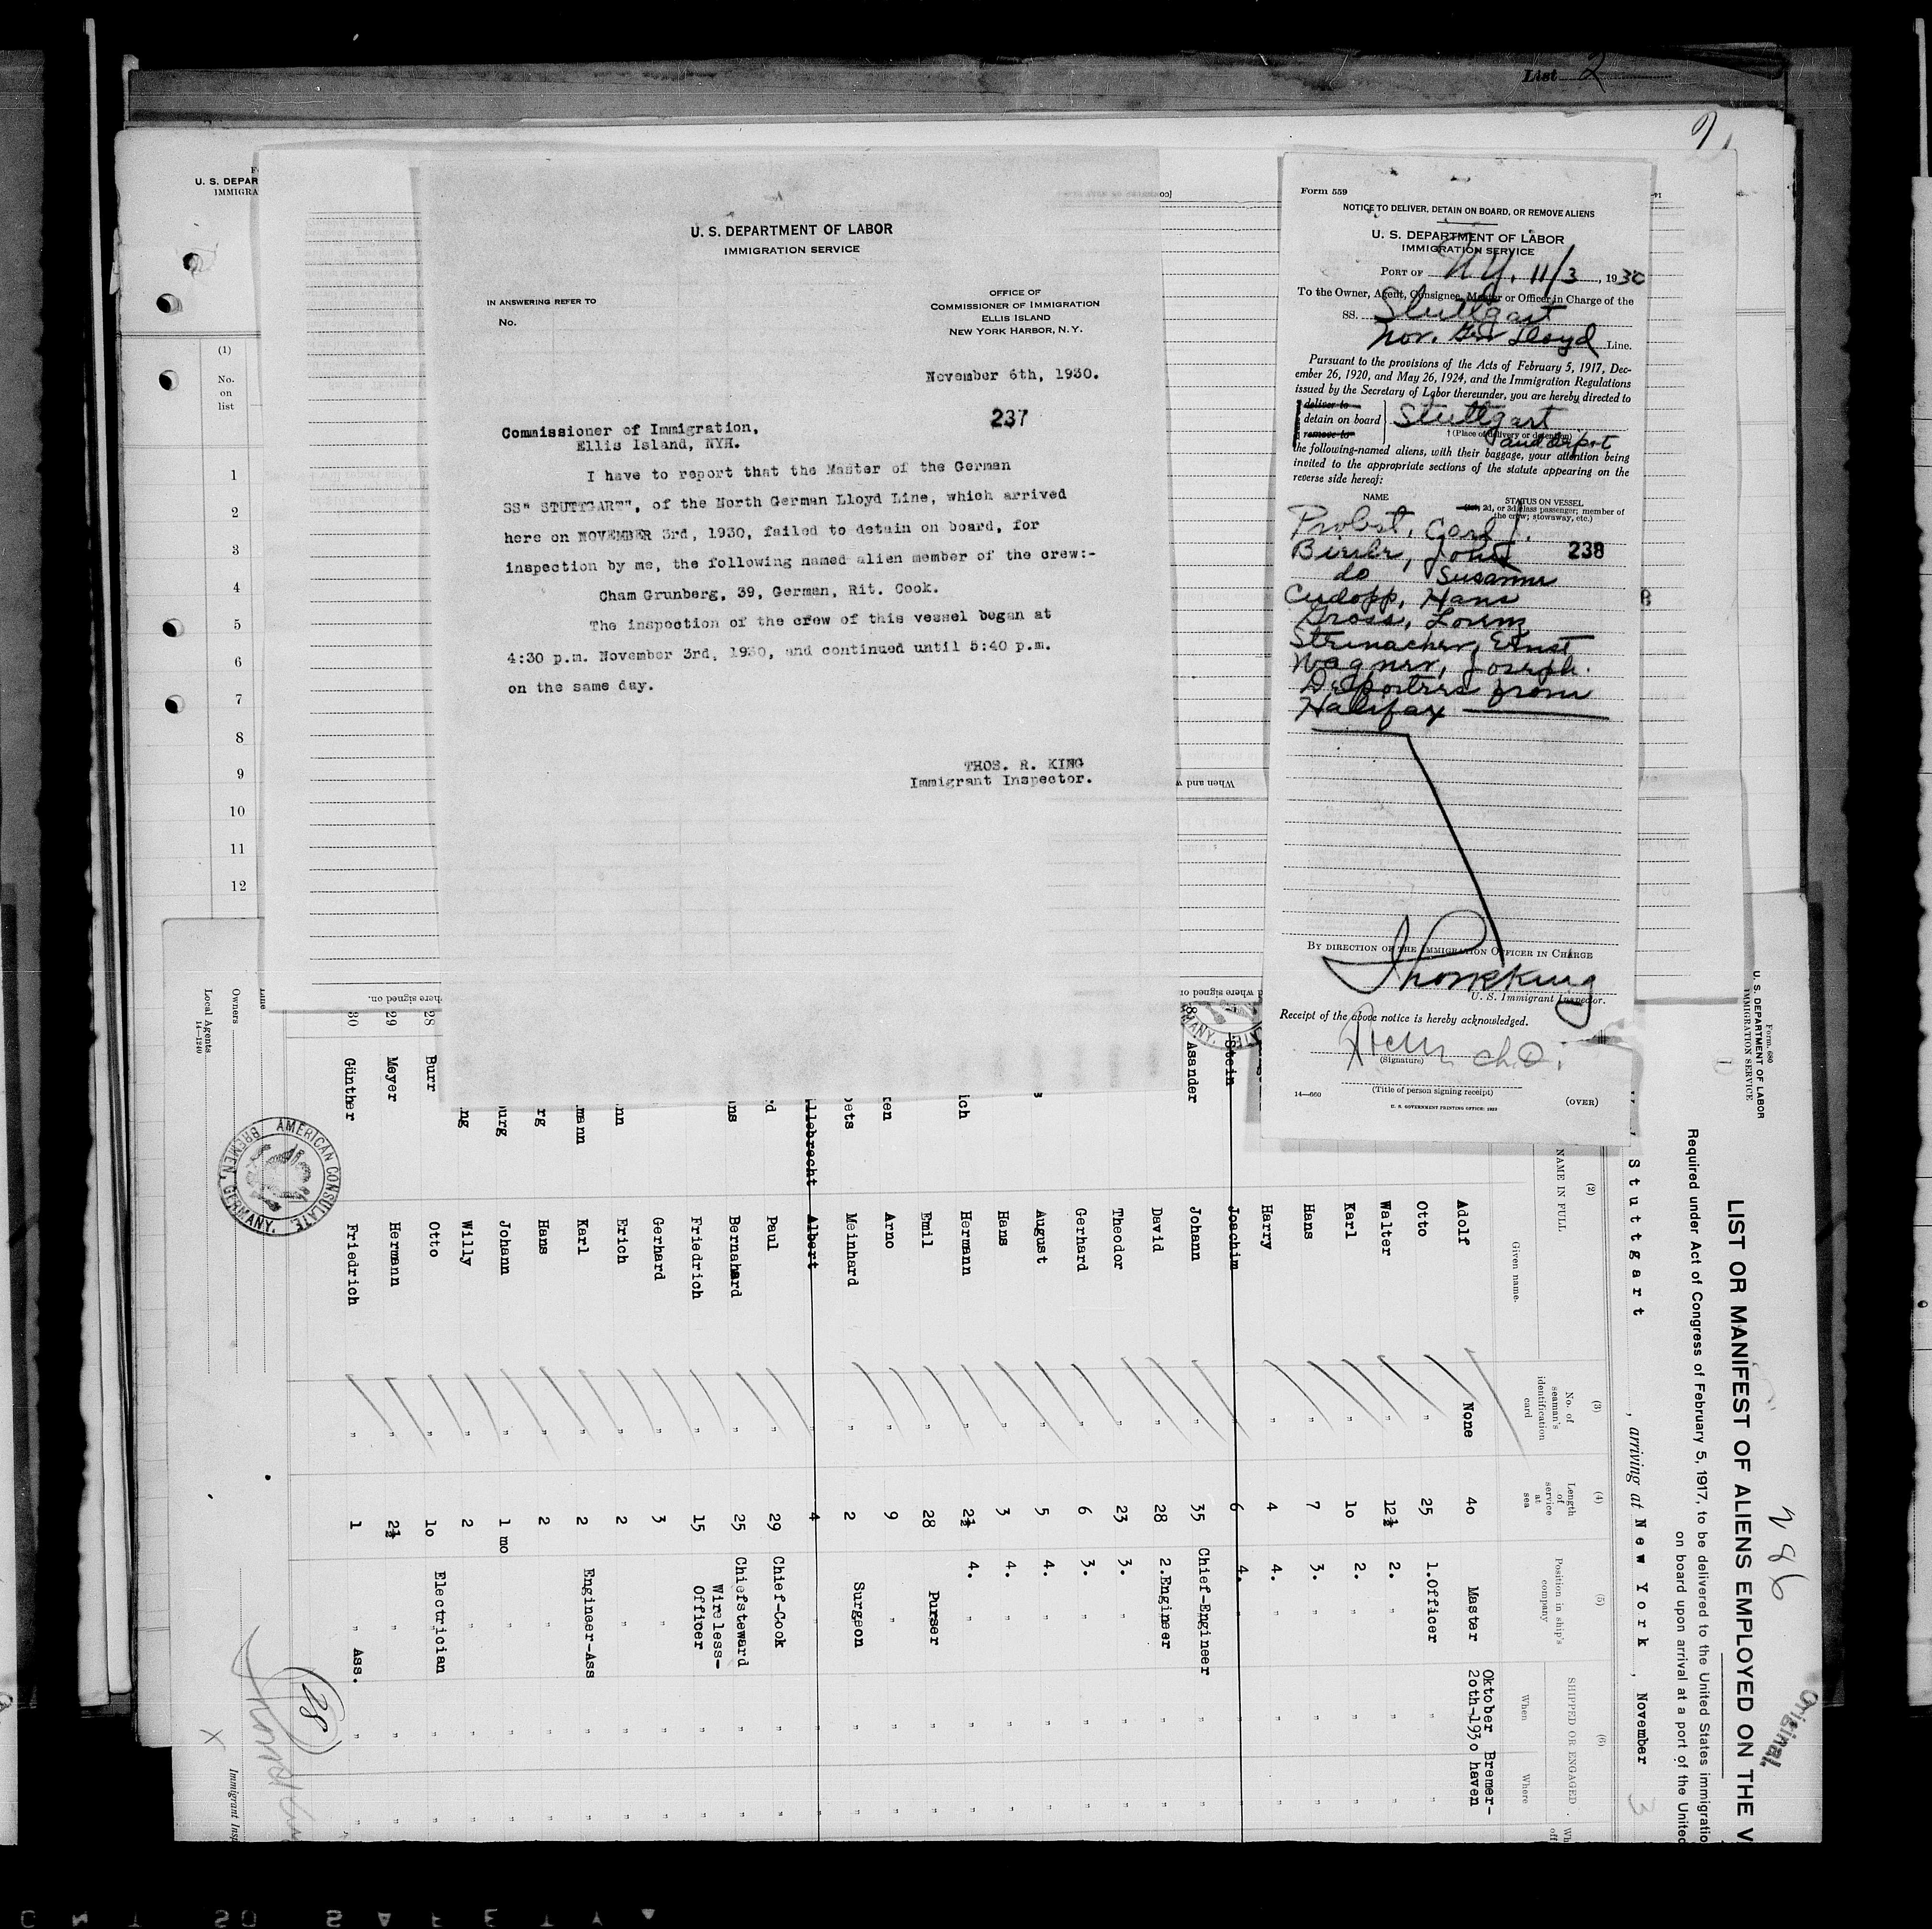 List 2
U. S. DEPAR
IMMIGRA
(1)
No.
on
list
1
2
3
4
5
6
7
8
9
10
11
12
U. S. DEPARTMENT OF LABOR
IMMIGRATION SERVICE
IN ANSWERING REFER TO
No.
OFFICE OF
COMMISSIONER OF IMMIGRATION
ELLIS ISLAND
NEW YORK HARBOR, N. Y.
November 6th, 1930.
237
Commissioner of Immigration,
Ellis Island, NYH.
I have to report that the Master of the German
SS" STUTTGART", of the North German Lloyd Line, which arrived
here on NOVEMBER 3rd, 1930, failed to detain on board, for
inspection by me, the following named alien member of the crew:-
Cham Grunberg, 39, German, Rit. Cook.
The inspection of the crew of this vessel began at
4:30 p.m. November 3rd, 1930, and continued until 5:40 p.m.
on the same day.
THOS. R. KING
Immigrant Inspector.
Form 559
NOTICE TO DELIVER, DETAIN ON BOARD, OR REMOVE ALIENS
U. S. DEPARTMENT OF LABOR
IMMIGRATION SERVICE
PORT OF N.Y. 11/3, 1930
To the Owner, Agent, Consignee, Master or Officer in Charge of the
SS. Stuttgart
Nor. Ger Lloyd Line.
Pursuant to the provisions of the Acts of February 5, 1917, Dec-
ember 26, 1920, and May 26, 1924, and the Immigration Regulations
issued by the Secretary of Labor thereunder, you are hereby directed to
deliver to
detain on board Stuttgart
remove to † (Place of delivery or detention) and deport
the following-named aliens, with their baggage, your attention being
invited to the appropriate sections of the statute appearing on the
reverse side hereof:
NAME
STATUS ON VESSEL
(1st, 2d, or 3d class passenger; member of
the crew; stowaway, etc.)
Probst, Carl
John 238
do Susanne
Cudopp, Hans
Gross, Lorenz
Steinacher, Ernst
Wagner, Joseph.
Deportees from
Halifax
BY DIRECTION OF THE IMMIGRATION OFFICER IN CHARGE
Thos R King
U. S. Immigrant Inspector.
Receipt of the above notice is hereby acknowledged.
(Signature)
(Title of person signing receipt)
14—660
U. S. GOVERNMENT PRINTING OFFICE: 1929
(OVER)
When and w
here signed on.
d where signed on
Form 680
U. S. DEPARTMENT OF LABOR
IMMIGRATION SERVICE
286
Original.
LIST OR MANIFEST OF ALIENS EMPLOYED ON THE V
Required under Act of Congress of February 5, 1917, to be delivered to the United States immigratio
on board upon arrival at a port of the United
Stuttgart, arriving at New York, November 3
(2)
NAME IN FULL
Given name.
(3)
No. of
seaman's
identification
card
(4)
Length
of
service
at
sea
(5)
Position in ship's
company
(6)
SHIPPED OR ENGAGED
When
Where
Adolf None 40 Master Oktober 20th-1930 Bremer-haven
Otto " 25 1.Officer " "
Walter " 12½ 2. " " "
Karl " 10 2. " " "
Hans " 7 3. " " "
Harry " 4 4. " " "
Stein Joachim " 6 4. " " "
Asander Johann " 35 Chief-Engineer " "
David " 28 2.Engineer " "
Theodor " 23 3. " " "
Gerhard " 6 3. " " "
August " 5 4. " " "
Hans " 3 4. " " "
ich Hermann " 2½ 4. " " "
Emil " 28 Purser " "
ten Arno " 9 " " "
bets Meinhard " 2 Surgeon " "
llebrecht Albert " 4 " " "
rd Paul " 29 Chief-Cook " "
ns Bernahard " 25 Chiefsteward " "
Friedrich " 15 Wireless-Officer " "
Gerhard " 3 " " "
nn Erich " 2 " " "
mann Karl " 2 Engineer-Ass " "
rg Hans " 2 " " "
burg Johann " 1 mo " " "
ng Willy " 2 " " "
28 Burr Otto " 10 Electrician " "
29 Meyer Hermann " 2½ " " "
30 Günther Friedrich " 1 " Ass. " "
(28)
AMERICAN CONSULATE
BREMEN, GERMANY.
Line
Owners
Local Agents
14—1240
Immigrant Ins